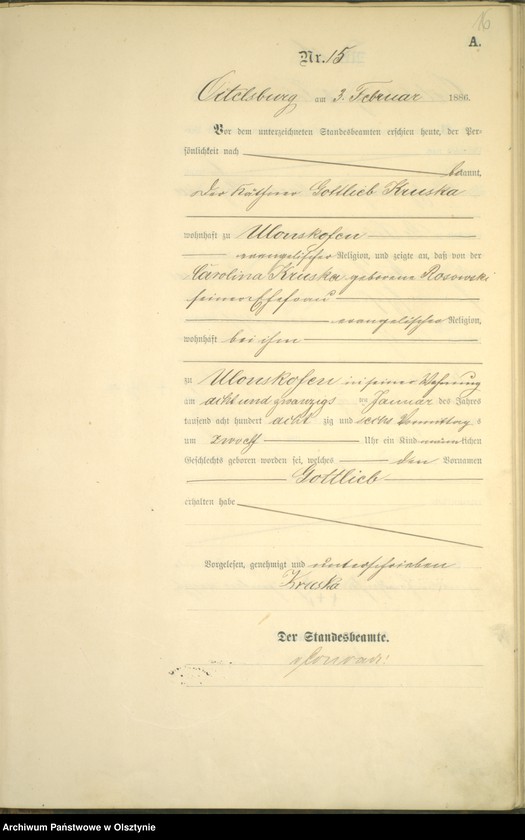 16
A.
Nr. 15
Ortelsburg am 3. Februar 1886.
Vor dem unterzeichneten Standesbeamten erschien heute, der Per-
sönlichkeit nach
bekannt,
der Käthner Gottlieb Kruska
wohnhaft zu Ulonskofen
evangelischer Religion, und zeigte an, daß von der
Carolina Kruska geborene Rosowski
seiner Ehefrau
evangelischer Religion,
wohnhaft bei ihm
zu Ulonskofen in seiner Wohnung
am acht und zwanzigs ten Januar des Jahres
tausend acht hundert acht zig und sechs Vormittag s
um zwoelf Uhr ein Kind männlichen
Geschlechts geboren worden sei, welches den Vornamen
Gottlieb
erhalten habe
Vorgelesen, genehmigt und unterschrieben
Kruska
Der Standesbeamte.
Archiwum Państwowe w Olsztynie